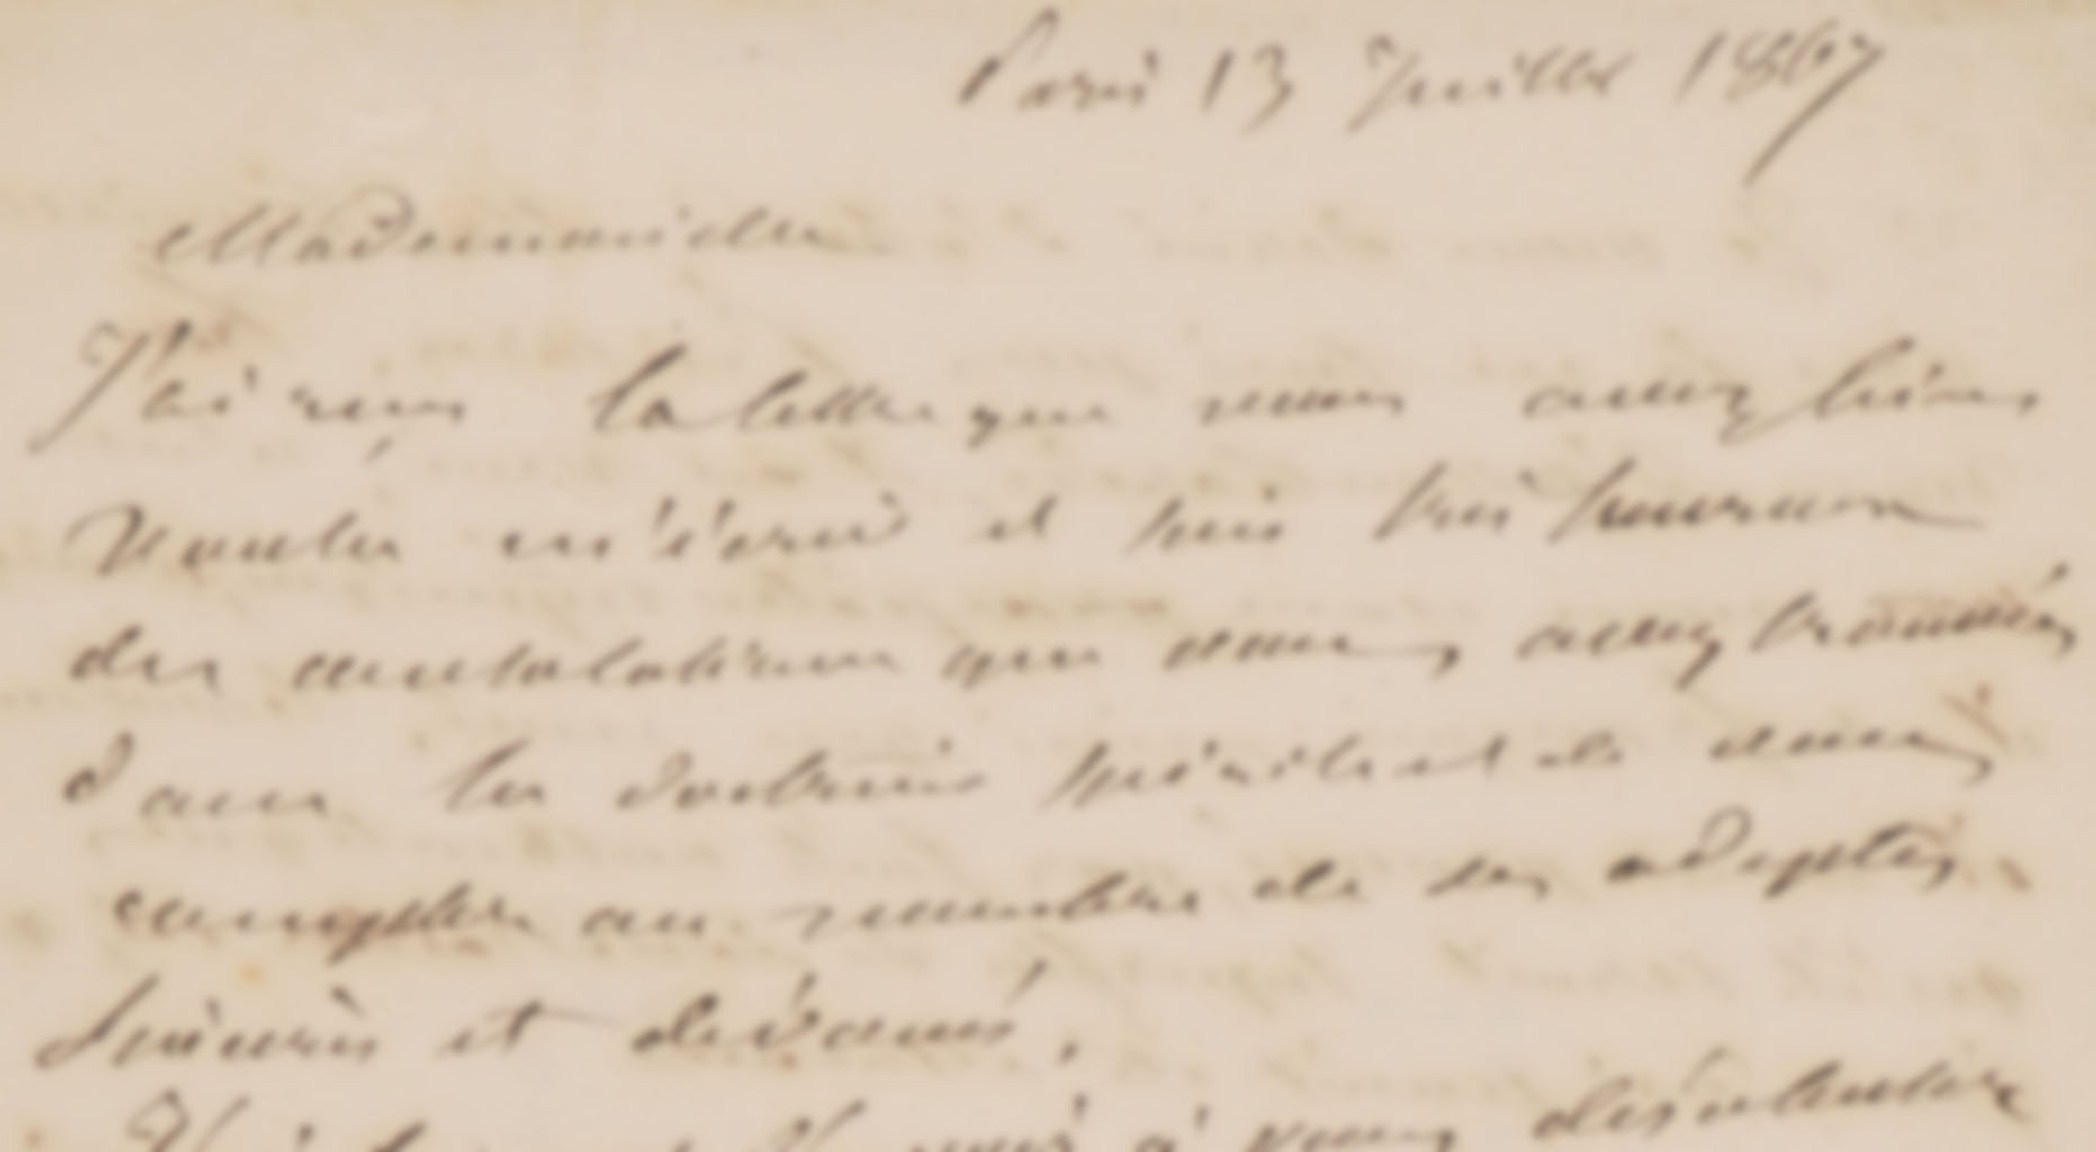 Paris 13 Juillet 1867
Mademoiselle
J'ai reçu la lettre que vous avez bien
voulu m'écrire et suis très heureux
des consolations que vous avez trouvées
dans la doctrine spirite et de vous
compter au nombre de ses adeptes
sincères et dévoués.
à vous